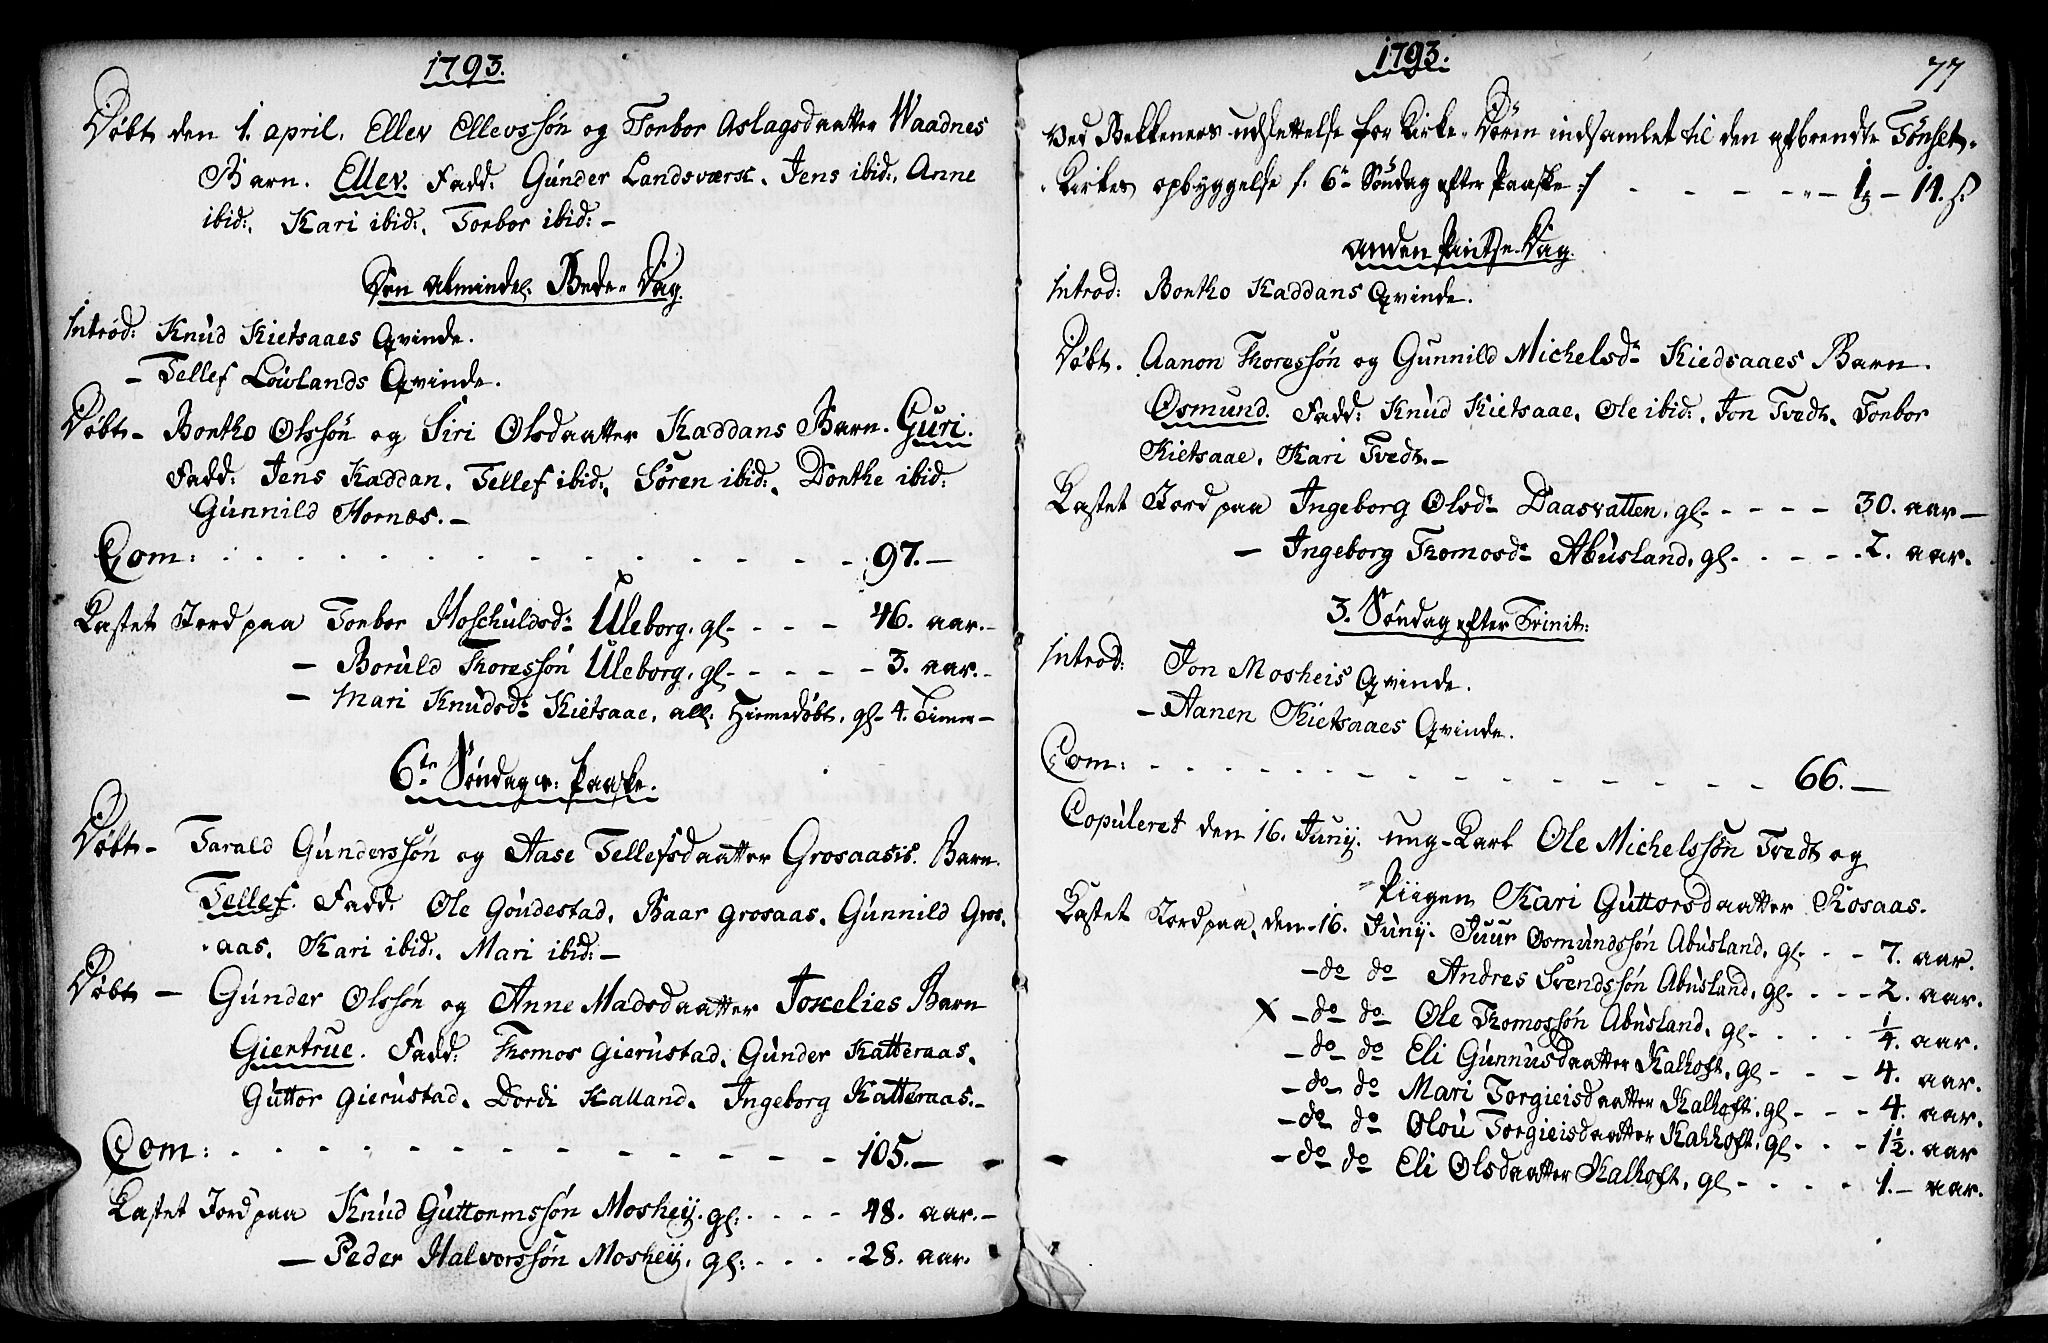 1793.
Døbt den 1. april. Ellev Ellevssøn og Torbor Aslagsdaatter Waadnes
Barn. Ellev. Fadd: Gunder Landsværk. Jens ibid:. Anne
ibid:. Kari ibid:. Torbor ibid:-
Den almindel: Bede-Dag.
Introd: Knud Kietsaaes Qvinde.
- Tellef Lowlands Qvinde.
Døbt- Bontho Olssøn og Siri Olsdaatter Kaddans Barn. Guri.
Fadd: Jens Kaddan. Tellef ibid:. Søren ibid:. Dorthe ibid:
Gunnild Hornæs.-
Com: - - - - 97.-
Kastet Jord paa Torbor Hoschuldsd: Uleborg. gl- - - - 46. aar.-
- Boruld Thoressøn Uleborg. gl- - - - - 3. aar.-
- Mari Knudsd: Kietsaae. all: Hiemedøbt. gl- 4. Timer-
6te Søndag e: Paaske.
Døbt- Tarald Gunderssøn og Aase Tellefsdaatter Grosaasis. Barn.
Tellef. Fadd: Ole Goudestad. Baar Grosaas. Gunnild Gros-
-aas. Kari ibid:. Mari ibid:-
Døbt - Gunder Olssøn og Anne Madsdaatter Joxelies Barn
Giertrue. Fadd: Thomos Gierustad. Gunder Katteraas.
Guttor Gierustad. Dordi Kalland. Ingeborg Katteraas.-
Com: - - - - 105.-
Kastet Jord paa Knud Guttormssøn Moshey. gl: - - - 48. aar.-
- Peder Halvorssøn Moshey. gl: - - - 28. aar.
1793.
77
Ved Bekkeners udsettelse for Kirke-Døren indsamlet til den afbrendte Tønset-
-Kirkes opbyggelse /: 6te Søndag efter Paaske :/ - - - - 1 - 14. s.
Anden Pintse-Dag.
Introd: Bontho Kaddans Qvinde.
Døbt. Aanon Thoressøn og Gunnild Michelsd: Kiedsaaes Barn.
Osmund. Fadd: Knud Kietsaae. Ole ibid:. Jon Tvedt. Torbor
Kietsaae. Kari Tvedt.-
Kastet Jord paa Ingeborg Olsd: Daasvatten. gl- - - - - 30. aar-
- Ingeborg Thomosd: Abusland. gl- - - - 2. aar.
3. Søndag efter Trinit:
Introd: Jon Mosheis Qvinde.
- Aanen Kietsaaes Qvinde.
Com: - - - - 66.-
Copuleret den 16. Junij. ung-Karl Ole Michelssøn Tvedt og
Piigen Kari Guttorsdaatter Rosaas.
Kastet Jord paa, den 16. Junij. Juur Osmundssøn Abusland. gl- - - 7. aar.
- do do Andres Svendssøn Abusland. gl- - - - 2. aar.
X - do do Ole Thomossøn Abusland. gl- - - - 1/4. aar.
- do do Eli Gunnusdaatter Kalhoft. gl - - - 4. aar.
- do do Mari Torgieisdaatter Kalhoft. gl- - - 4. aar.
- do do Olou Torgieisdaatter Kalhoft. gl- - - 1 1/2. aar
- do do Eli Olsdaatter Kalhoft. gl - - - - 1.- aar.